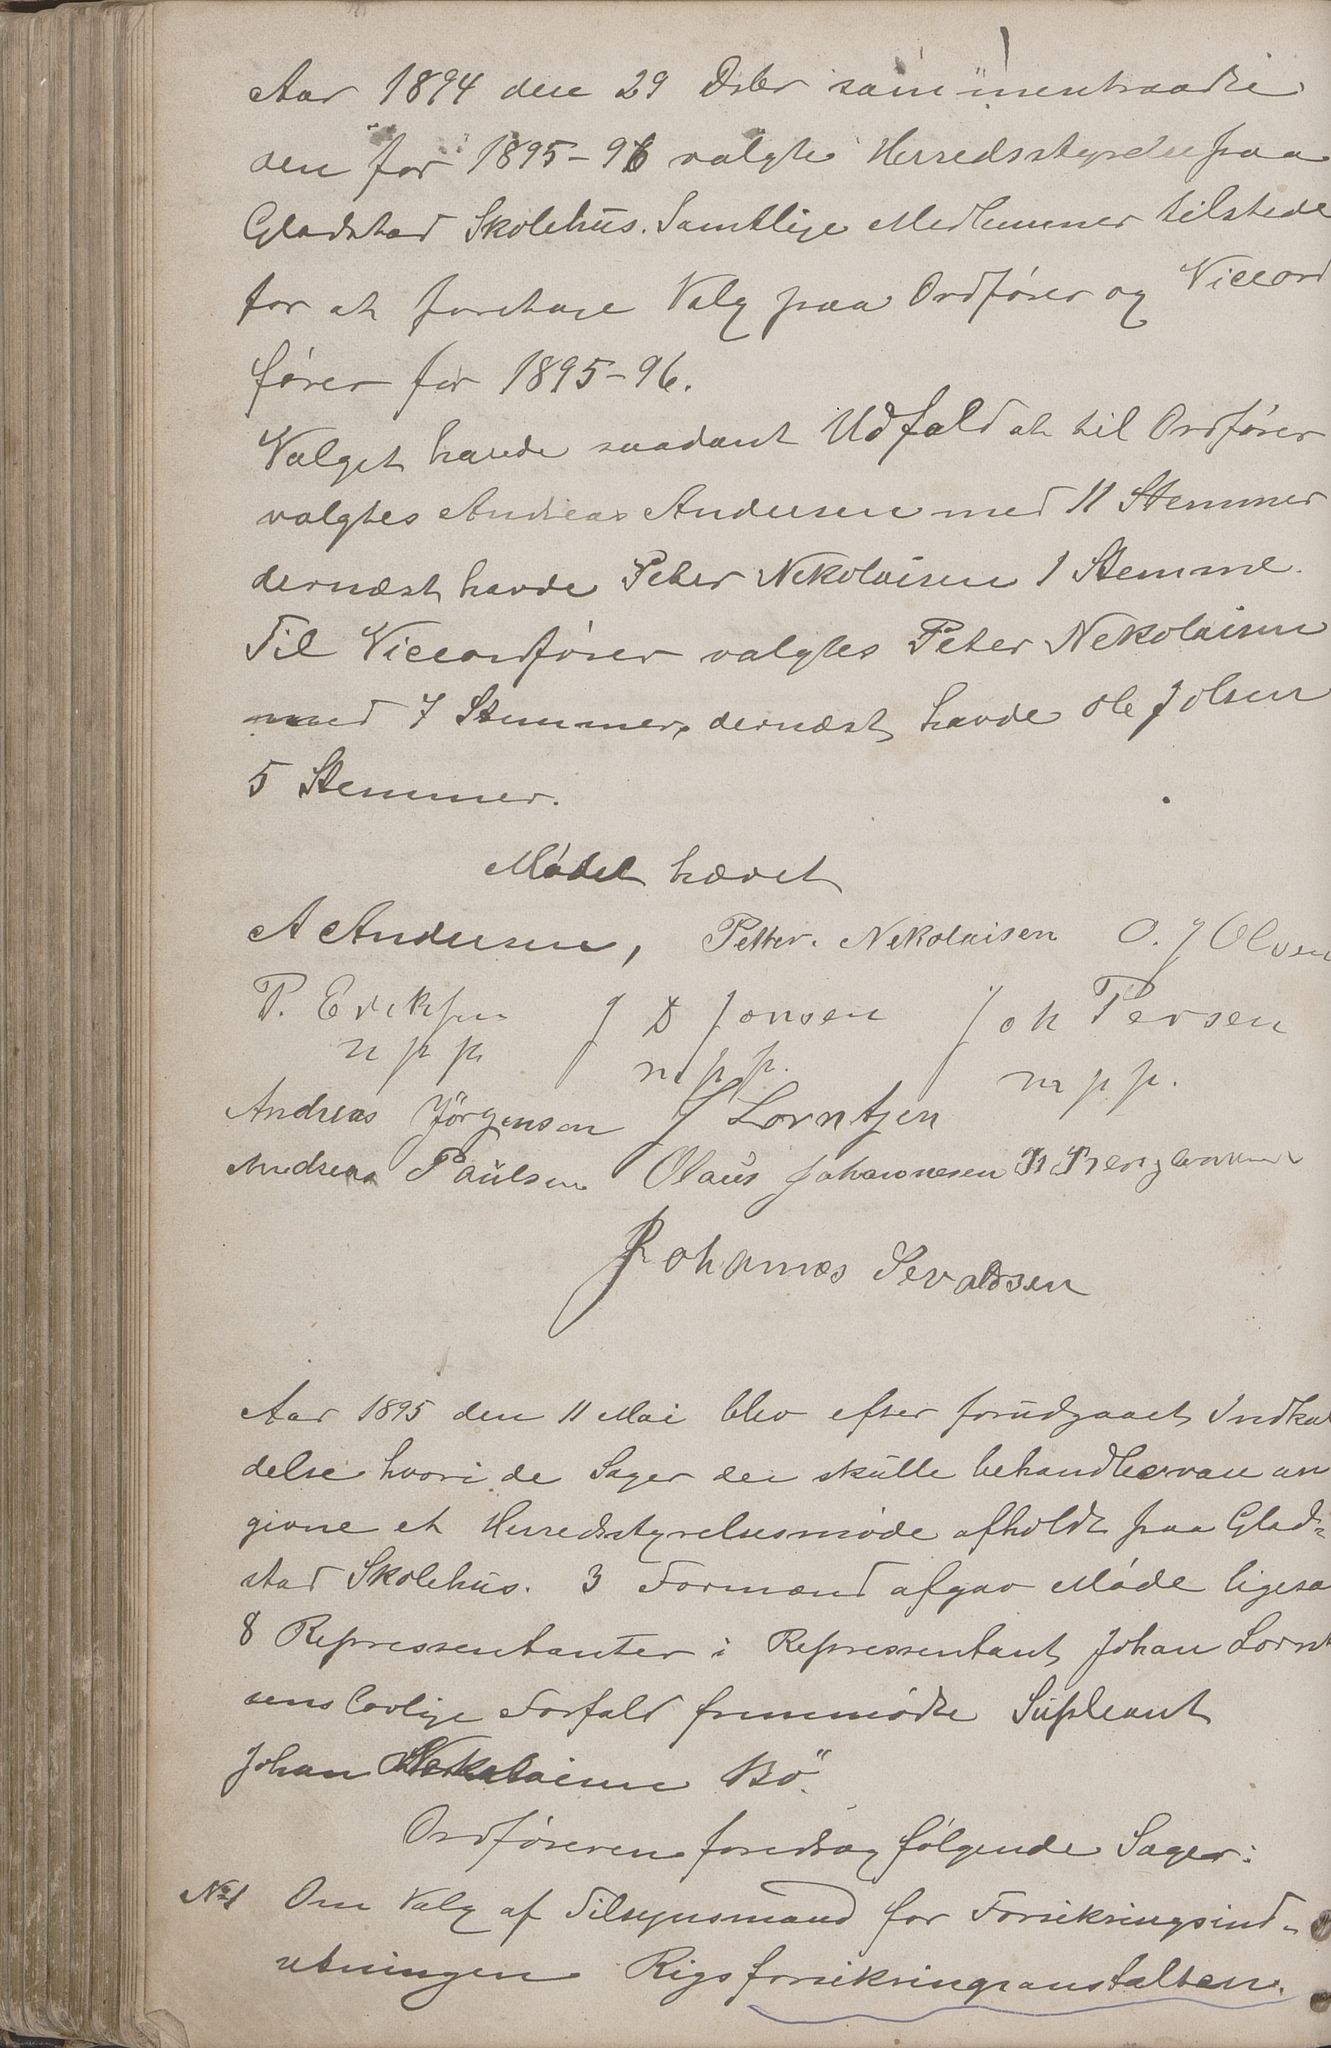 Aar 1894 den 29 Dsbr sammentraadte
den for 1895-96 valgte Herredsstyrelse paa
Gladstad Skolehus. Samtlige Medlemmer tilstede
for at foretage Valg paa Ordfører og Viceord
fører for 1895-96.
Valget havde saadant Udfald at til Ordfører
valgtes Andreas Andersen med 11 Stemmer
dernæst havde Peter Nekolaisen 1 Stemme.
Til Viceordfører valgtes Peter Nekolaisen
med 7 Stemmer, dernæst havde Ole J Olsen
5 Stemmer.
Mødet hævet
A Andersen, Petter Nekolaisen O. J Olsen
P. Eriksen J D Jonsen Joh Persen
m p p m p p. m p p.
Andreas Jørgensen J Lorntzen
Andreas Paulsen Olaus Johannesen
Johannes Sevaldsen
Aar 1895 den 11 Mai blev efter forudgaaet Indkal
delse hvori de Sager der skulle behandles var an
givne et Herredsstyrelsesmøde afholdt paa Glad-
stad Skolehus. 3 Formænd afgav Møde ligesaa
8 Repressentanter i Repressentant Johan Lornt
sens lovlige Forfald fremmødte Supleant
Johan Nekolaisen Bø.
Ordføreren foredrag følgende Sager:
No 1 Om Valg af Tilsynsmand for Forsikringsind-
retningen Rigsforsikringsanstalten.